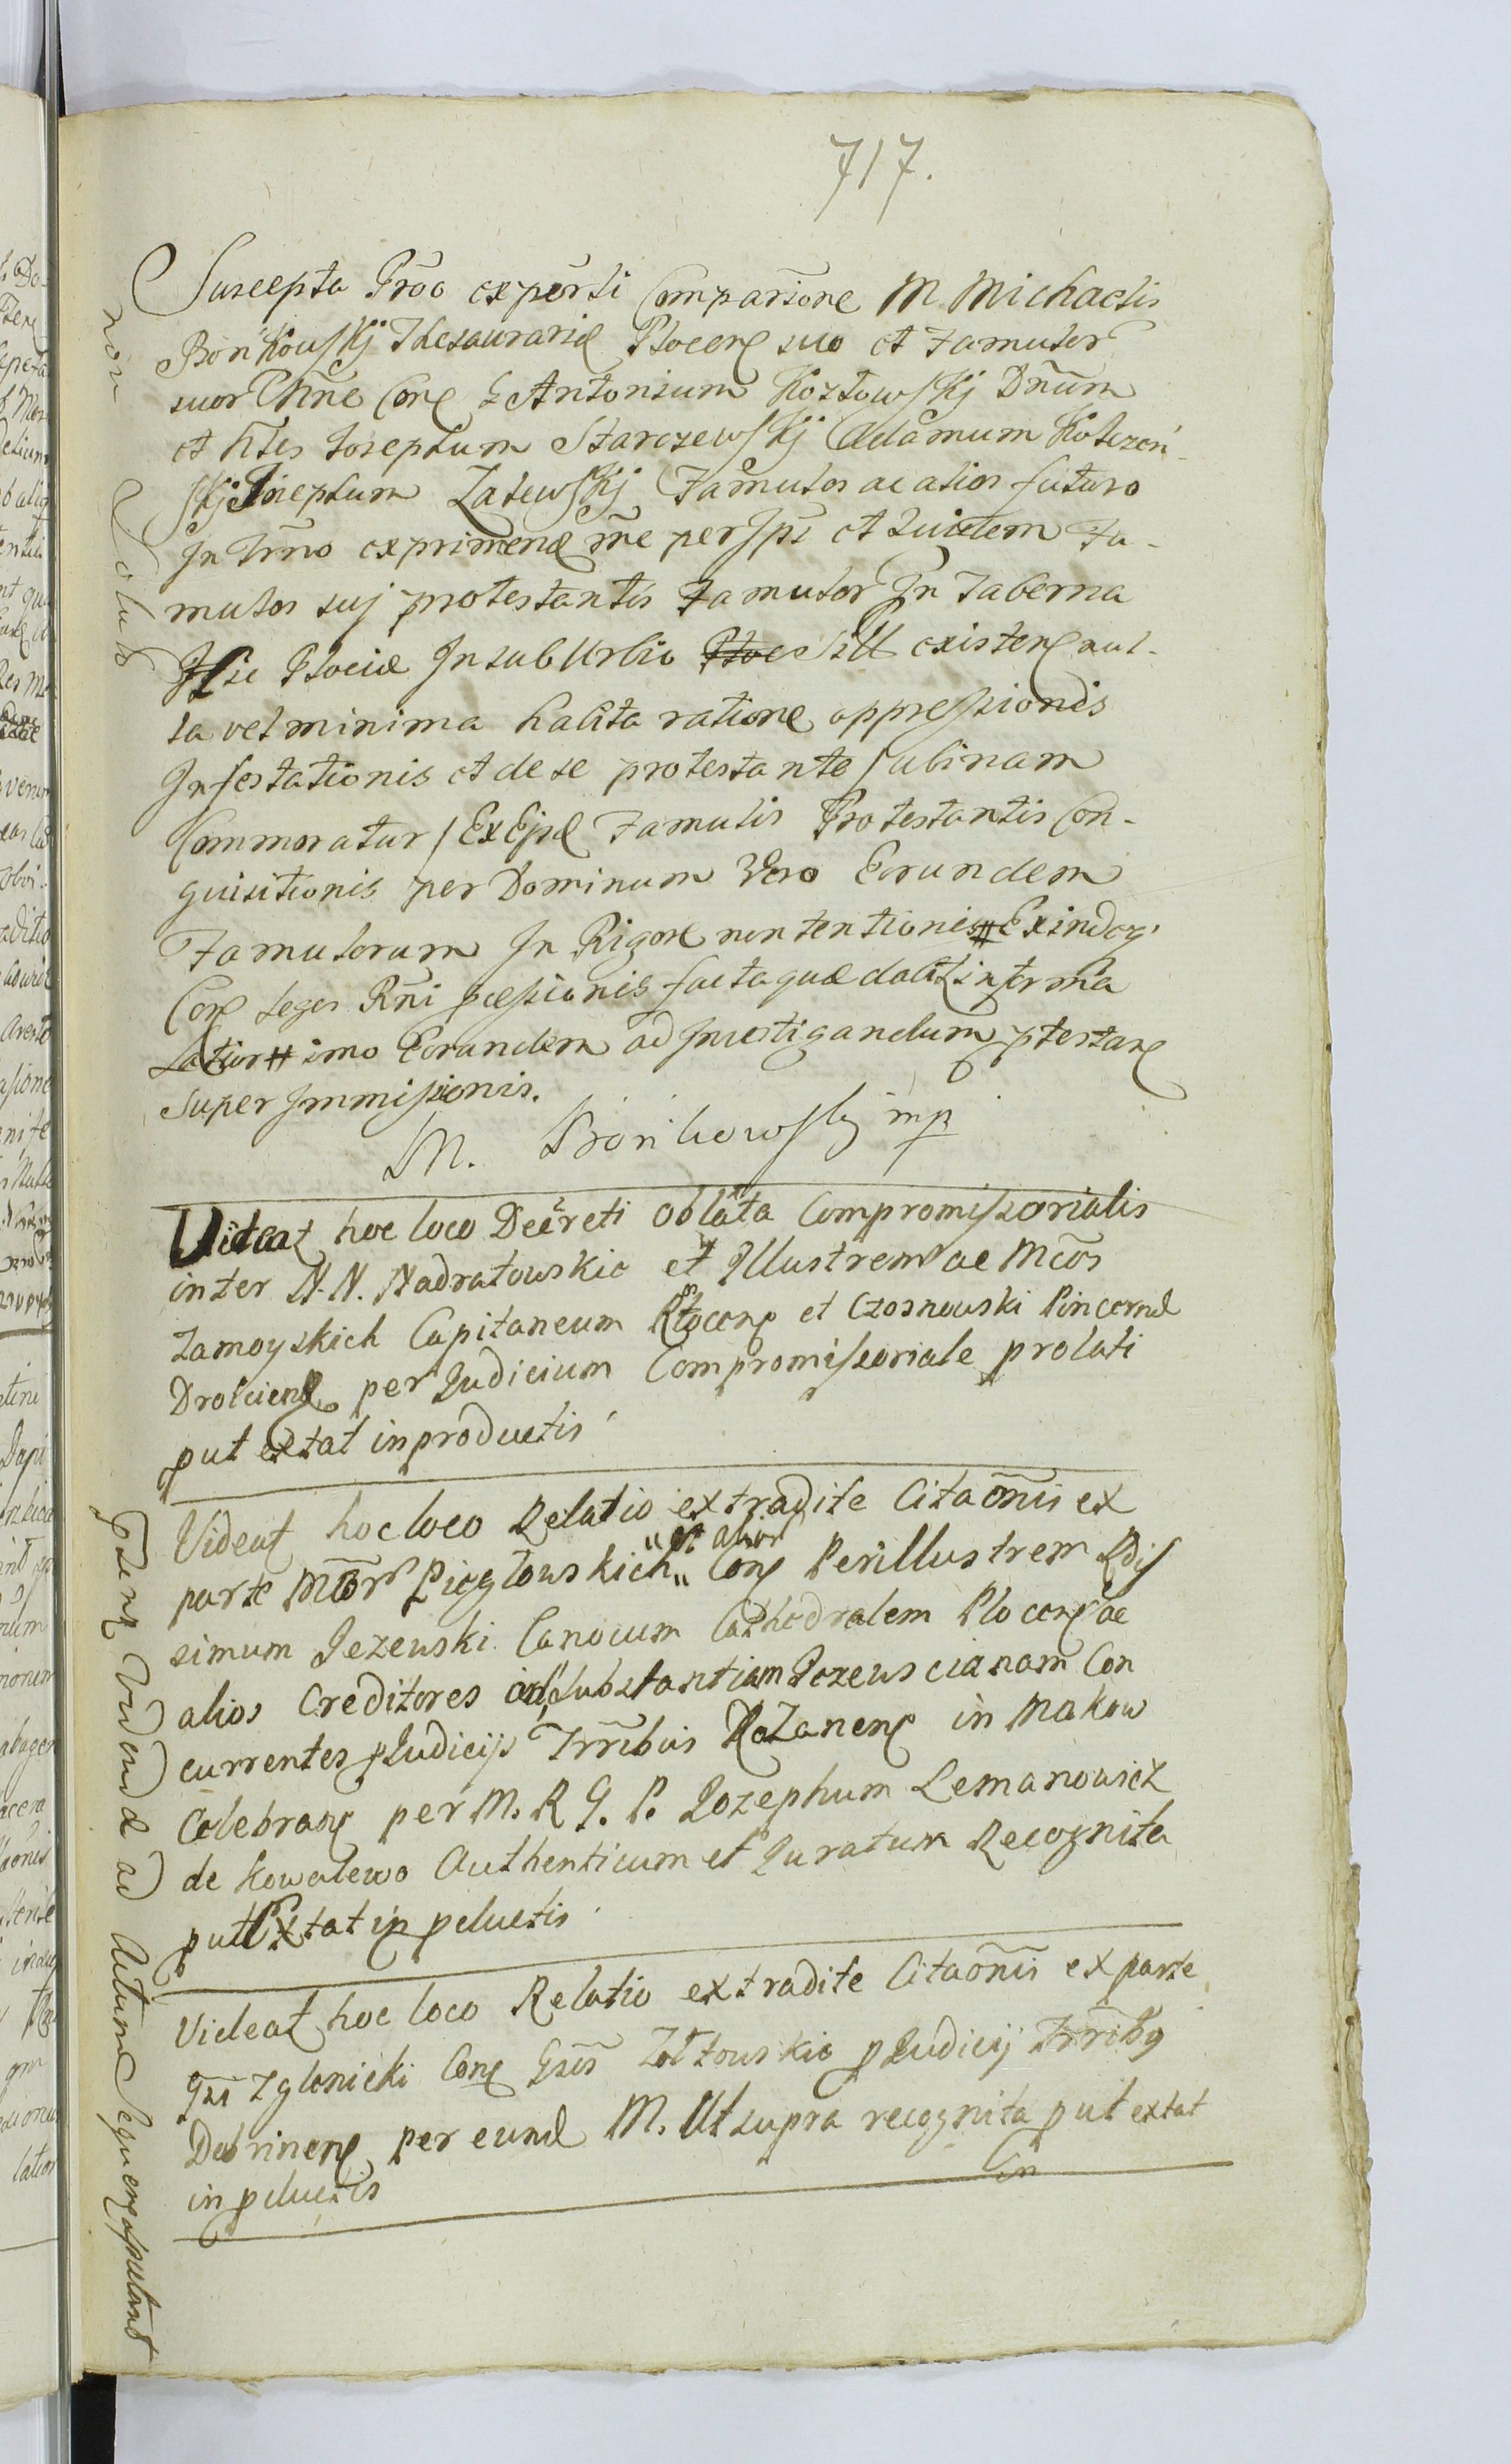 717.
Suscepta Prõo experti Compariõne M Michaelis
Bońkowskij Thesaurarid Płocen suo et Famulor
suor Nñe Con G Antonium Kozłowskij Dnũm
et Ntes Josephum Starczewskij Adamum Kołczeń-
skij Josephum Zalewskij Famulos ac alios futuro
In Trñno exprimend rñe per Ipś et quidem Fa-
mulos suj protestantis Famulor In Taberna
Hic Plociæ In suburbio Sitt existen nul-
la vel minima habita ratione oppressionis
Infestationis et de se protestante subinam
Commoratur Ex Ejsd Famulis Protestantis Con-
quisitionis per Dominum vero Eorundem
Famulorum In Rigore non tentionis # Exindeq
Con leges Rñi pcessionis facta quæ dabit in forma
Latior # imo Eorundem ad Investigandum ptestan
super Immissionis.
M. Bońkowsky mp
Non Solut
Videat hoc loco Decreti oblata Compromissorialis
inter N. N. Nadratowskie et Illustrem ac Mcos
Zamoyskich Capitaneum Płocen et Czosnowski Pincernd
Drohiciens per Judicium Compromissoriale prolati
put extat in productis
Videat hoc loco Relatio extradite Citaõnis ex
parte Mcõr Piegłowskich "et alior" Con Perillustrem Rdis
simum Jezewski Canocum Cathedralem Plocen ac
alios Creditores ad Substantiam Jezewscianam Con
currentes p Judicijs Trribus Rozanens in Makow
Celebran per M. R G. P. Jozephum Lemanowicz
de Kowalewo Authenticum et Juratum Recognita
put Extat in pductis
Videat hoc loco Relatio extradite Citaõnis ex parte
Gsi Zglenicki Con Gsos Zołtowskie p Judicij Trribq
Dobrinens per eund M. Ut supra recognita put extat
in pductis
In
Vidend ad Actum Sequen